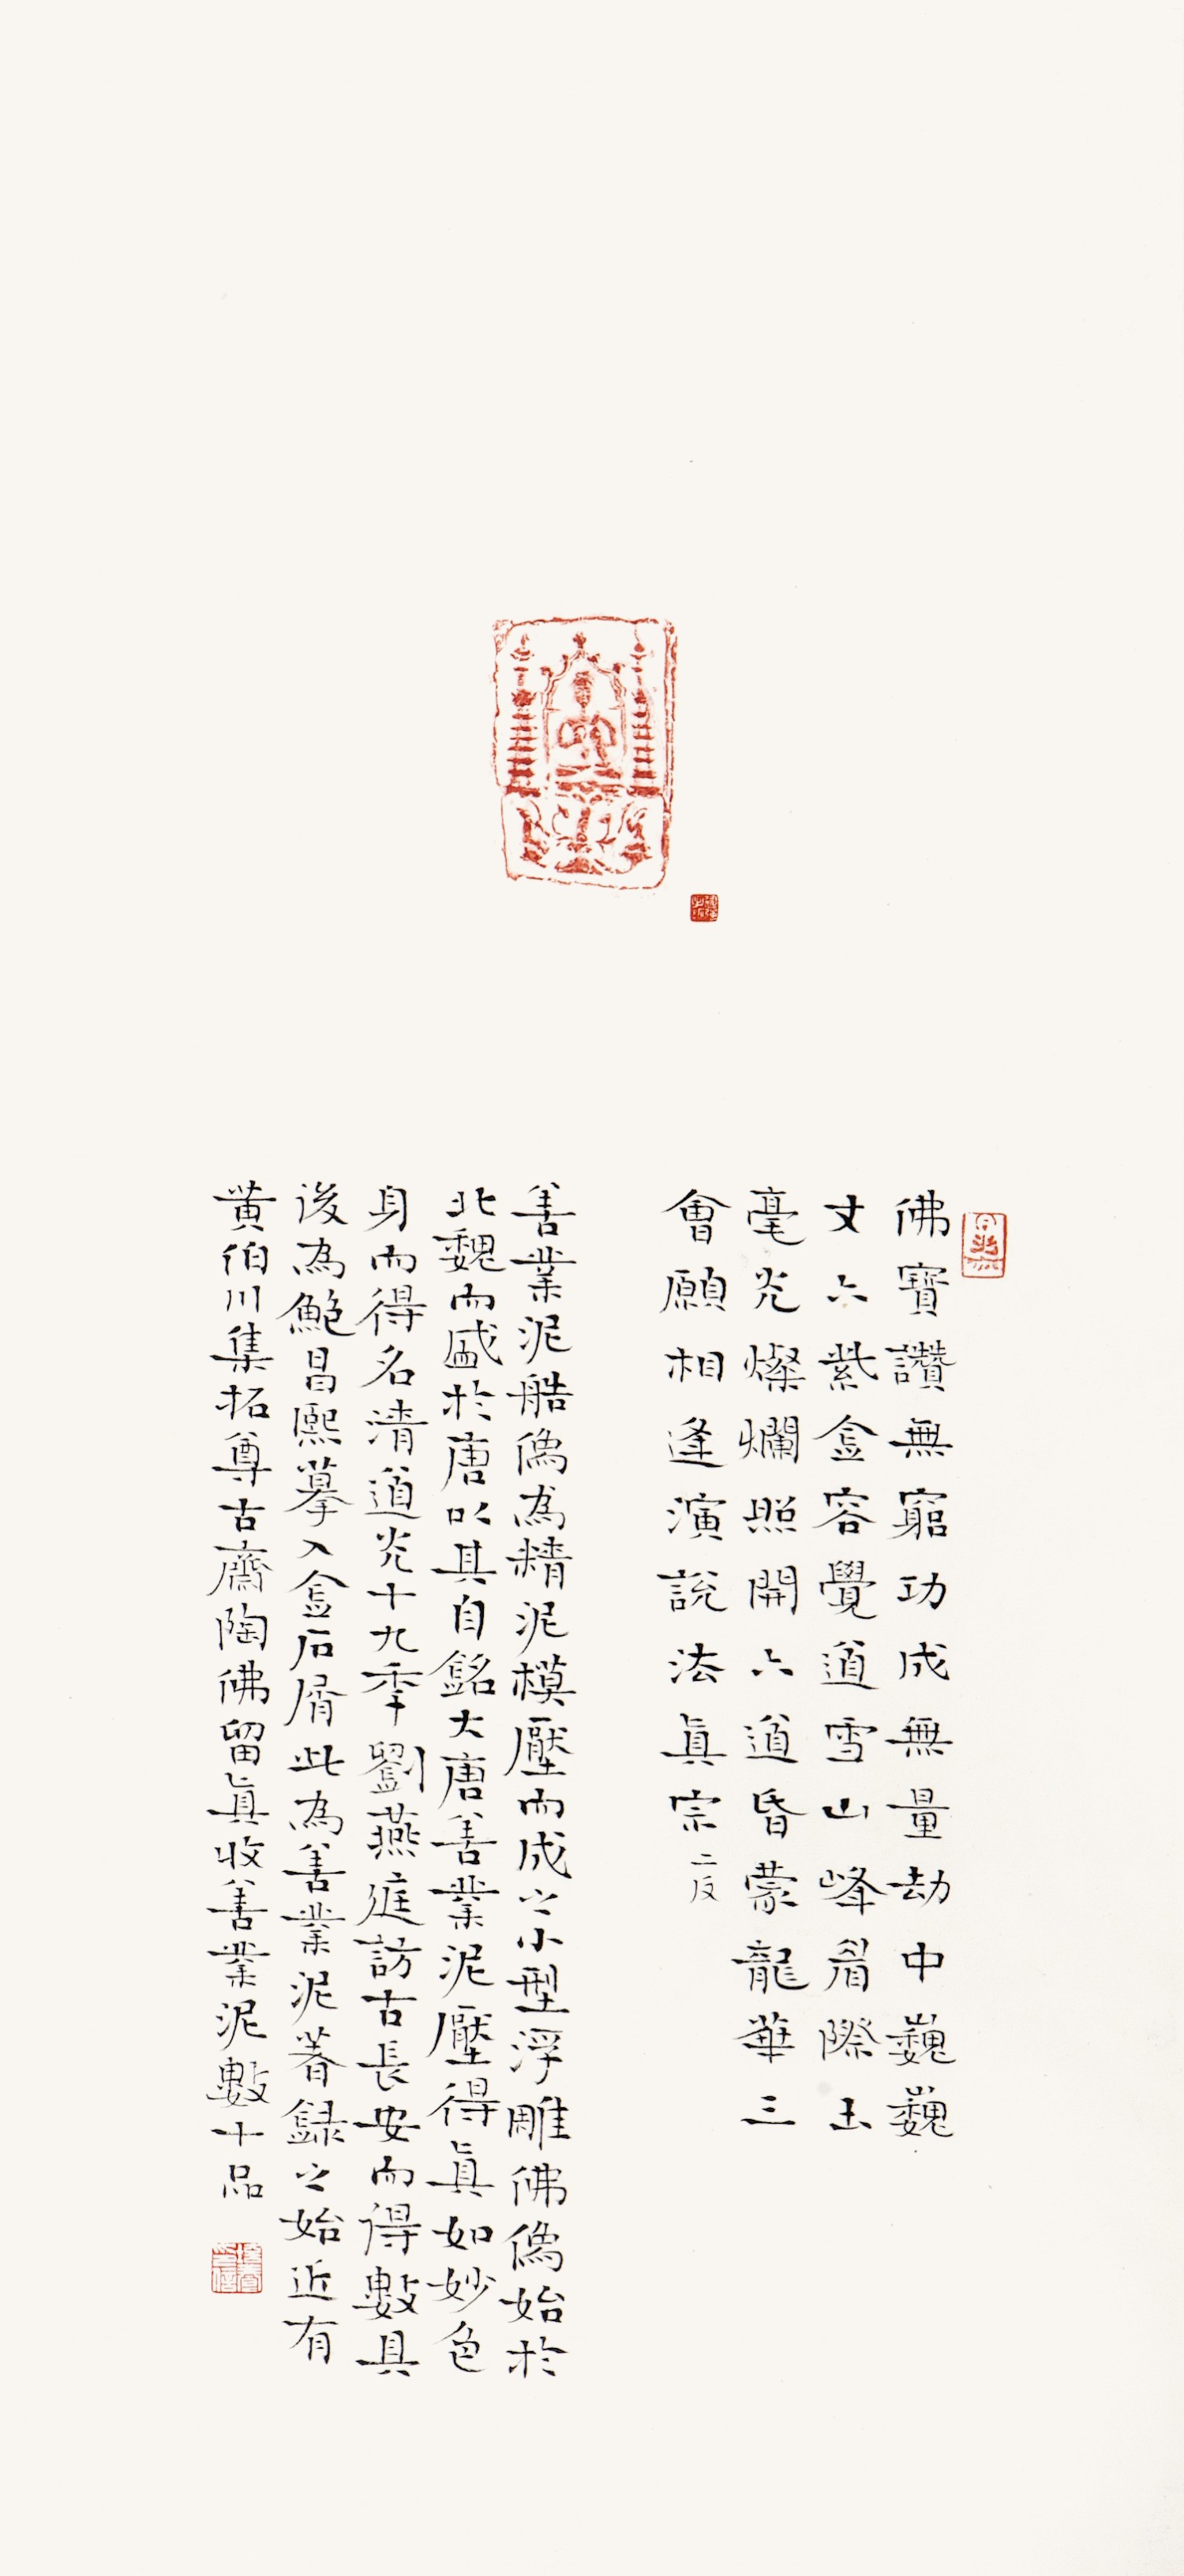 佛寶讚無窮功成無量劫中巍巍
丈六紫金容覺道雪山峰眉際玉
毫光燦爛照開六道昏蒙龍華三
會願相逢演說法真宗二反
善業泥造像為精泥模壓而成之小型浮雕佛像始於
北魏而盛於唐以其自銘大唐善業泥壓得真如妙色
身而得名清道光十九季劉燕庭訪古長安而得數具
後為鮑昌熙摹入金石屑此為善業泥著録之始近有
黃伯川集拓尊古齋陶佛留真收善業泥數十品